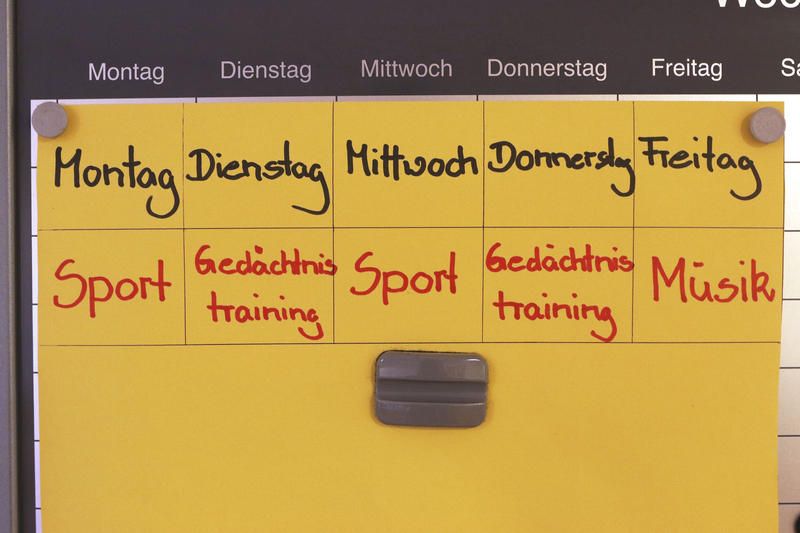 Montag Dienstag Mittwoch Donnerstag Freitag
Montag Dienstag Mittwoch Donnerstag Freitag
Sport Gedächtnis Sport Gedächtnis Müsik
training training